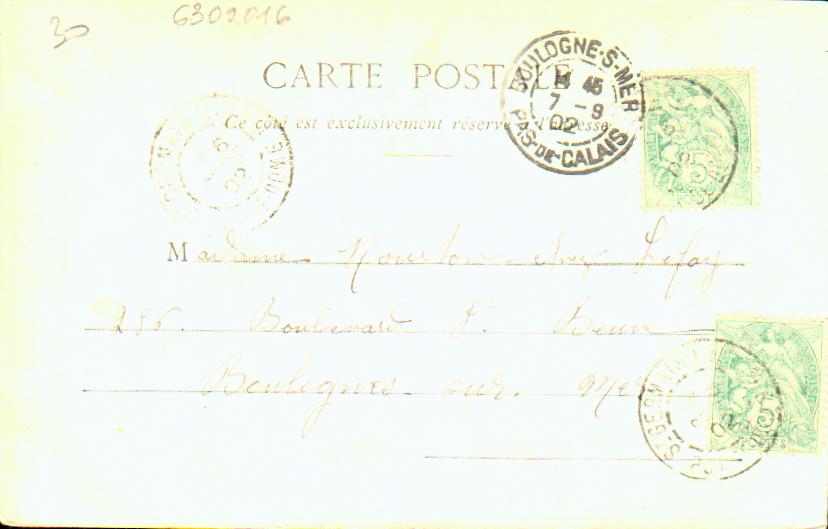 30
6302016
CARTE POSTALE
Ce côté est exclusivement réservé à l'adresse
BOULOGNE-S-MER
45
7 - 9
02
PAS-DE-CALAIS
Madame Mourlon chez Lefay
286. Boulevard St Beuve
Boulogne sur Mer
ST GERMAIN
5
POSTES